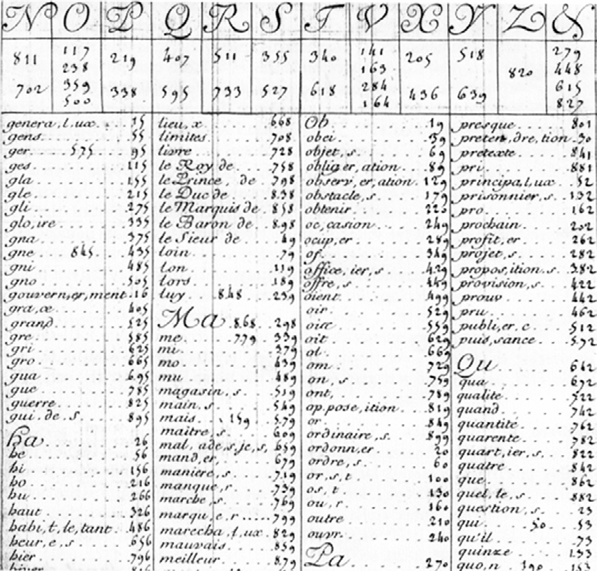 N O P Q R S T V X Y Z &
811 117 219 407 511 355 340 141 205 518 820 279
238 163 448
702 359 338 595 733 527 618 284 436 639 615
500 164 827
genera,l,ux 15
gens 55
ger 575 95
ges 115
gla 155
gle 215
gli 275
glo,ire 335
gna 375
gne 845 435
gni 485
gno 505
gouvern,er,ment 16
gra,x 405
grand 525
gre 585
gri 625
gro 665
gua 695
gue 785
guerre 825
gui de s 895
ha 26
he 56
hi 156
ho 216
hu 266
haut 326
habi,t,le,tant 486
heur,e,s 656
hier 796
hiver
lieu,x 668
limites 708
livre 728
le Roy de 758
le Prince, de 798
le Duc de 838
le Marquis de 858
le Baron de 898
le Sieur de 49
loin 79
lon 119
lors 189
luy 848 239
Ma 868 298
me 779 339
mi 379
mo 439
mu 489
magasin,s 519
main,s 549
mais 159 579
maitre,s 609
mal,ade,s,je,s 659
mand,er 679
maniere,s 719
manque,r 739
marche,s 769
marqu,e,r 799
marecha,l,ux 829
mauvais 859
meilleur 879
Ob 19
obei 59
objet,s 69
oblig,er,ation 89
observ,er,ation 129
obstacle,s 179
obtenir 220
oc,casion 249
ocup,er 289
of 349
office,ier,s 429
offre,s 449
oient 499
oir 529
oise 559
oit 629
ol 669
om 729
on,s 759
ont 789
op,pose,ition 819
or 849
ordinaire,s 899
ordonn,er 20
ordre,s 60
or,s,t 100
os,t 130
ou,r 160
outre 210
ouvr 240
Pa 270
presque 801
preten,dre,tion 30
pretexte 841
pri 881
principa,l,ux 52
prisonnier,s 132
pro 162
prochain 202
profit,er 262
projet,s 282
propos,ition,s 382
provision,s 422
prouv 442
pru 462
publi,er,c 512
puis,sance 572
Qu 642
qua 672
qualite 522
quand 742
quantité 762
quarente 782
quart,ier,s 822
quatre 842
que 862
quel,le,s 882
question,s 23
qui 50 53
qu'il 73
quinze 133
quo,n 190 153